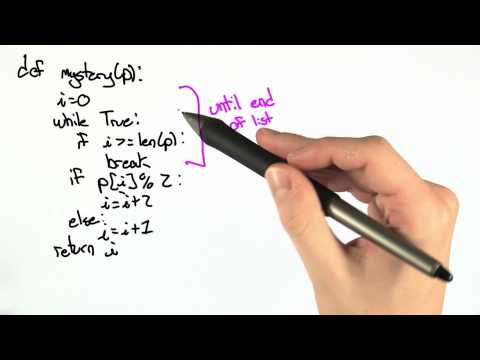 def mystery(p):
i=0
while True:
if i>=len(p):
break
if p[i]%2:
i=i+2
else:
i=i+1
return i
until end
of list